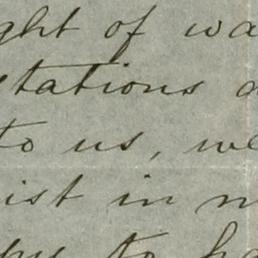 ght of wa
tations a
to us, we
ist in m
to ha